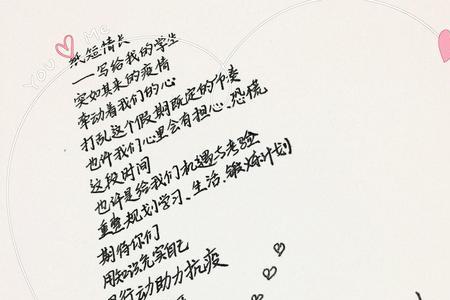 YOU & Me
纸短情长
——写给我的学生
突如其来的疫情
牵动着我们的心
打乱这个假期既定的节奏
也许我们心里会有担心、恐慌
这段时间
也许是给我们机遇与考验
重整规划学习、生活、锻炼计划
期待你们
用知识充实自己
用行动助力抗疫